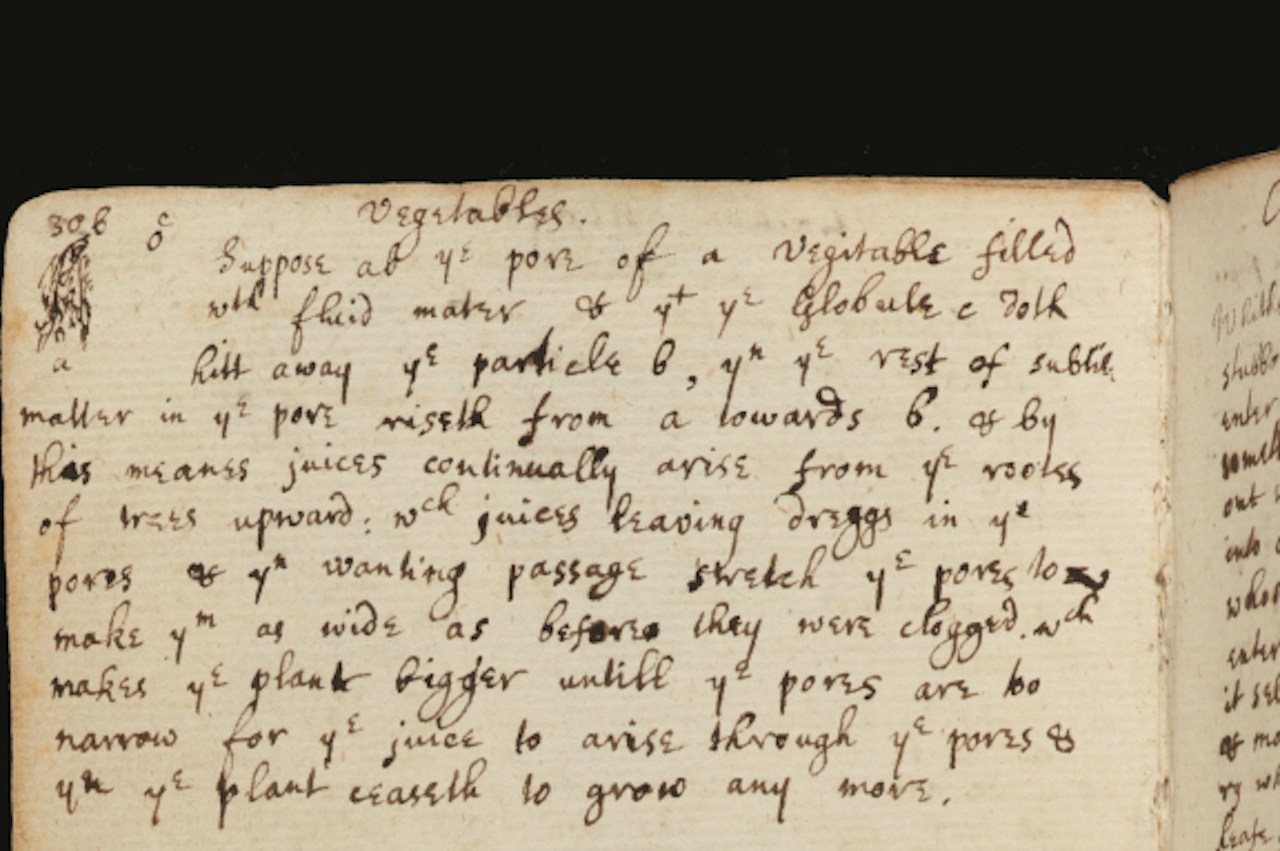 306 c Vegetables.
b
Suppose ab yᵉ pore of a Vegitable filled
wth fluid mater & yt yᵉ Globule c doth
a hitt away yᵉ particle b, yⁿ yᵉ rest of subtile
matter in yᵉ pore riseth from a towards b. & by
this meanes juices continually arise from yᵉ rootes
of trees upward: wch juices leaving dreggs in yᵉ
pores & yⁿ wanting passage stretch yᵉ pores to
make yᵐ as wide as before they were clogged. wch
makes yᵉ plant bigger untill yᵉ pores are too
narrow for yᵉ juice to arise through yᵉ pores &
yⁿ yᵉ plant ceaseth to grow any more.
enter
out
into
enter